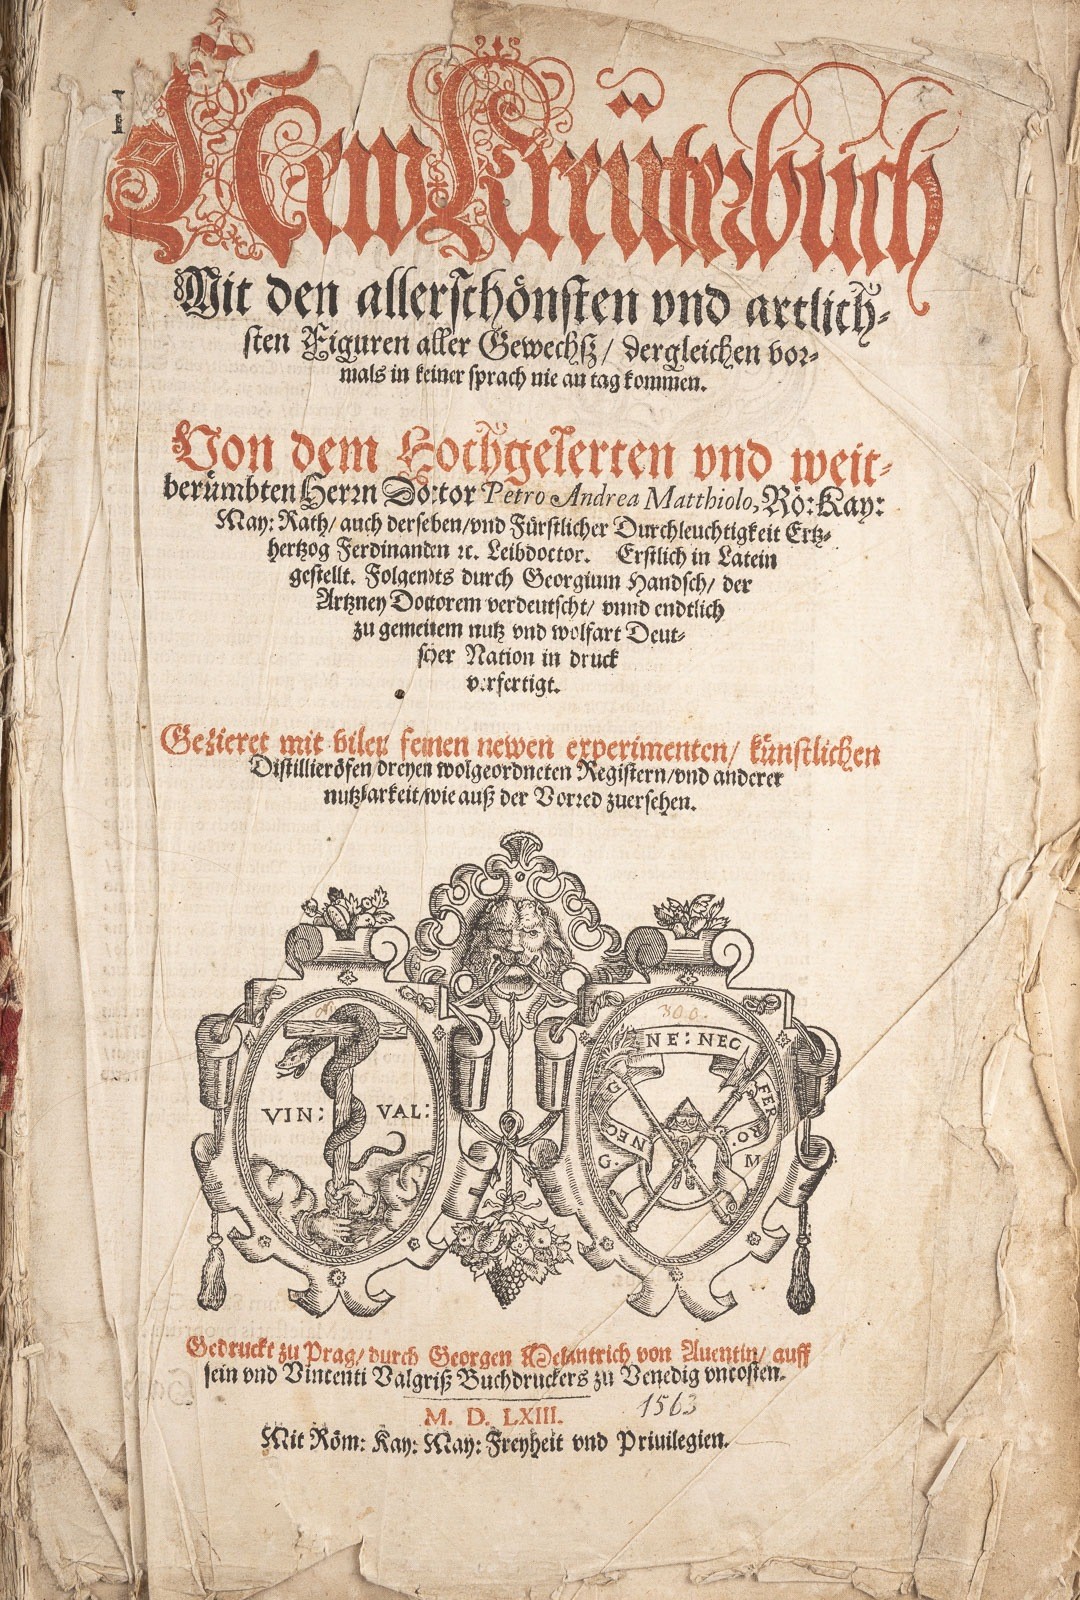 New Kreüterbuch
Mit den allerschönsten vnd artlich-
sten Figuren aller Gewechß/ dergleichen vor-
mals in keiner sprach nie an tag kommen.
Von dem Hochgelerten vnd weit-
berümbten Herrn Doctor Petro Andrea Matthiolo, Rö: Kay:
May: Rath/ auch derselben/ vnd Fürstlicher Durchleuchtigkeit Ertz-
hertzog Ferdinanden ꝛc. Leibdoctor. Erstlich in Latein
gestellt. Folgendts durch Georgium Handsch/ der
Artzney Doctorem verdeutscht/ vnnd endtlich
zu gemeinem nutz vnd wolfart Deut-
scher Nation in druck
verfertigt.
Gezieret mit vilen feinen newen experimenten/ künstlichen
Distillieröfen/ dreyen wolgeordneten Registern/ vnd anderer
nutzbarkeit/ wie auß der Vorred zuersehen.
VIN: VAL:
300.
NE: NEC
FERRO.
G NEC
G. M
Gedruckt zu Prag/ durch Georgen Melantrich von Auentin/ auff
sein vnd Vincenti Valgriß Buchdruckers zu Venedig vncosten.
M. D. LXIII. 1563
Mit Röm: Kay: May: Freyheit vnd Priuilegien.